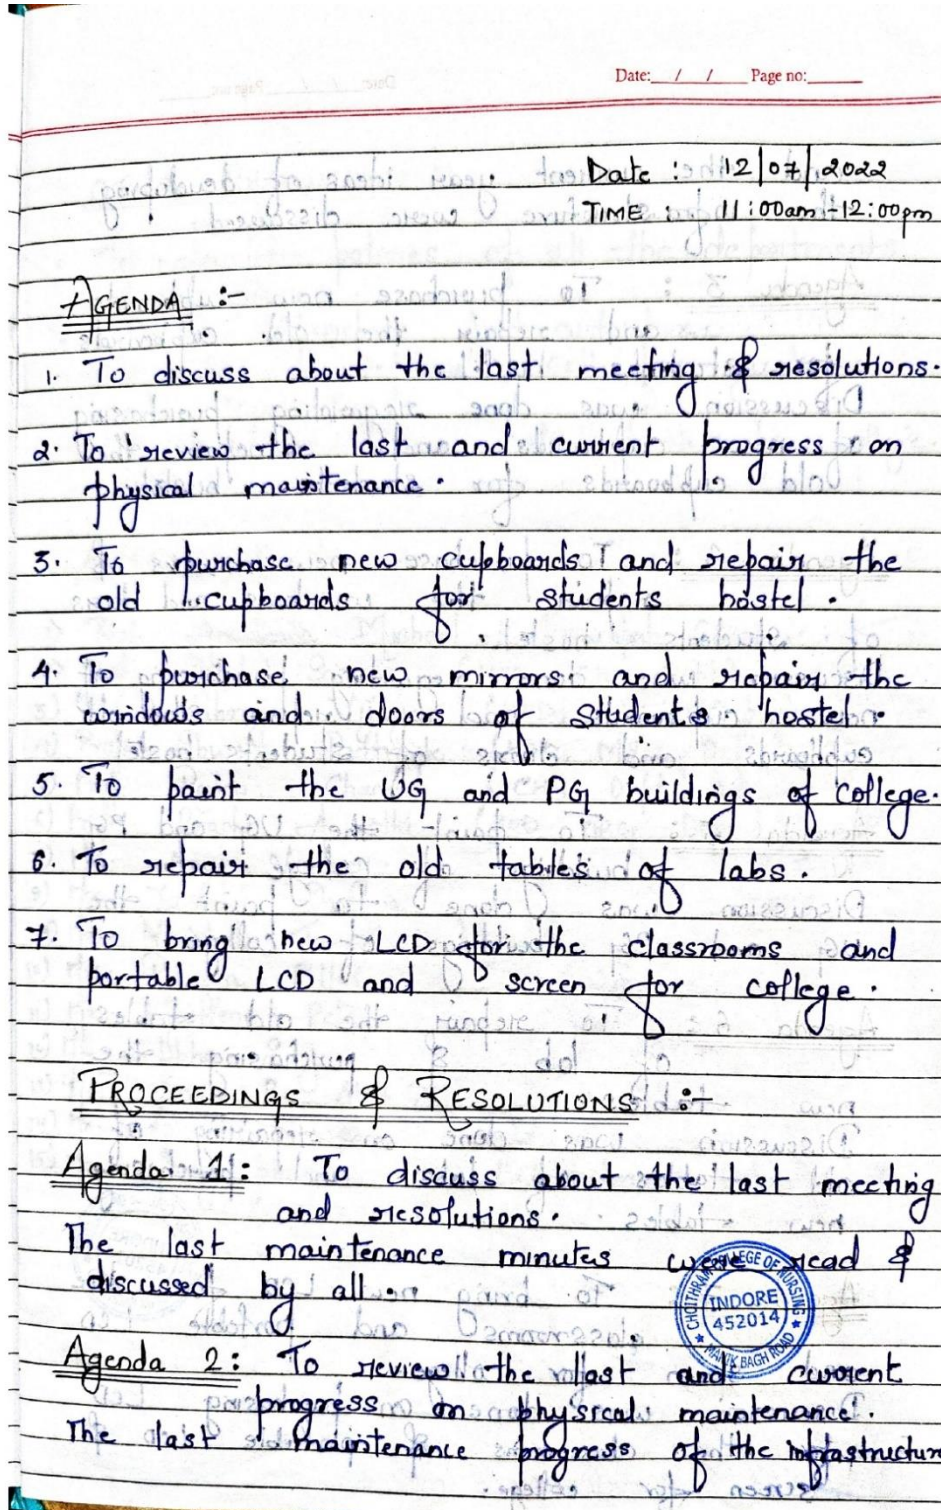 Date: / / Page no:
Date : 12/07/2022
TIME : 11:00am-12:00pm
AGENDA :-
1. To discuss about the last meeting & resolutions.
2. To review the last and current progress on
physical maintenance.
3. To purchase new cupboards and repair the
old cupboards for students hostel.
4. To purchase new mirrors and repair the
windows and doors of students hostel.
5. To paint the UG and PG buildings of college.
6. To repair the old tables of labs.
7. To bring new LCD for the classrooms and
portable LCD and screen for college.
PROCEEDINGS & RESOLUTIONS :-
Agenda 1: To discuss about the last meeting
and resolutions.
The last maintenance minutes were read &
discussed by all.
CHOITHRAM COLLEGE OF NURSING
INDORE
452014
MANIK BAGH ROAD
Agenda 2: To review the last and current
progress on physical maintenance.
The last maintenance progress of the infrastructure